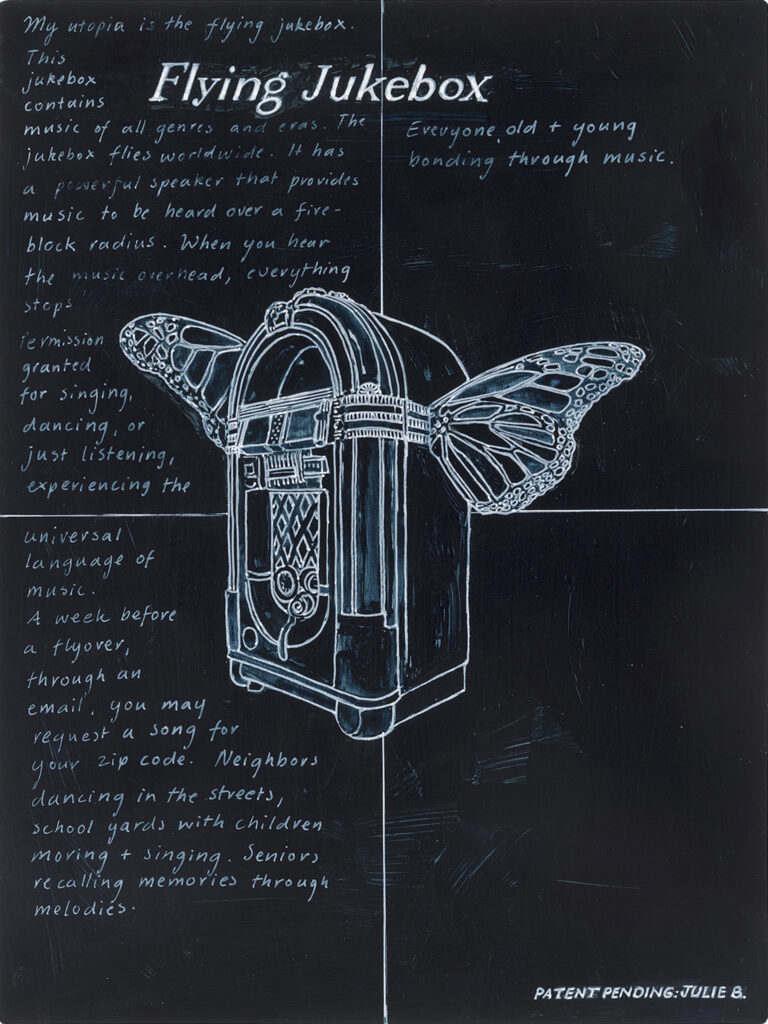 My utopia is the flying jukebox.
This
jukebox
contains
Flying Jukebox
music of all genres and eras. The
jukebox flies worldwide. It has
a powerful speaker that provides
music to be heard over a five-
block radius. When you hear
the music overhead, everything
stops
Permission
granted
for singing,
dancing, or
just listening,
experiencing the
universal
language of
music.
A week before
a flyover,
through an
email, you may
request a song for
your zip code. Neighbors
dancing in the streets,
school yards with children
moving + singing. Seniors
recalling memories through
melodies.
Everyone, old + young
bonding through music.
PATENT PENDING: JULIE B.